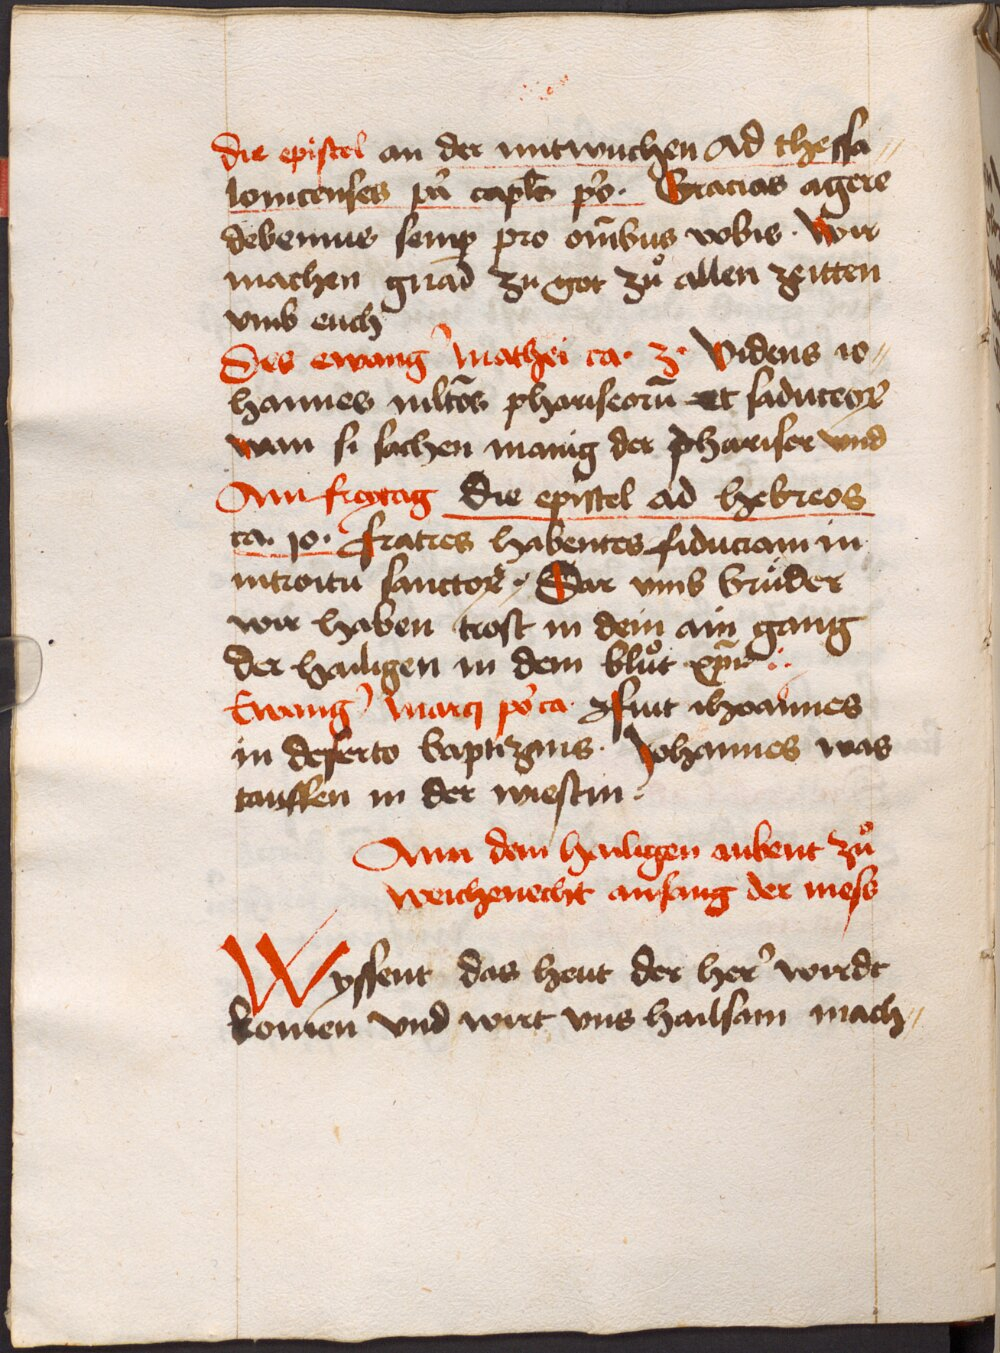 die epistel an der mitwuchen Ad thessa
lonicenses pͥa caplͦ pͦo. Gracias agere
debemus semꝑ pro om̄ibus vobis. Wir
machen gnad zu got zuͦ allen zeitten
vmb euch
Des ewang' Mathei ca. 3. Videns io
hannes mltōs phariseorū et saduceoꝝ
wan si sachen manig der phariser vnd
Am freytag die epistel ad hebreos
ca. 10. fratres habentes fiduciam in
introitu sanctoꝝ. Dar vmb bruͤder
wir haben trost in dem ain gang
der hailigen in dem bluͦt xp̄i
Ewang' Marci pͦo ca. fuit ihoannes
in deserto baptizans. Johannes was
tauffen in der wiestin
Ann dem hailigen aubent zuͦ
weichenecht anfang der mess
Wyssent das heut der her' wirdt
komen vnd wirt vns hailsam mach